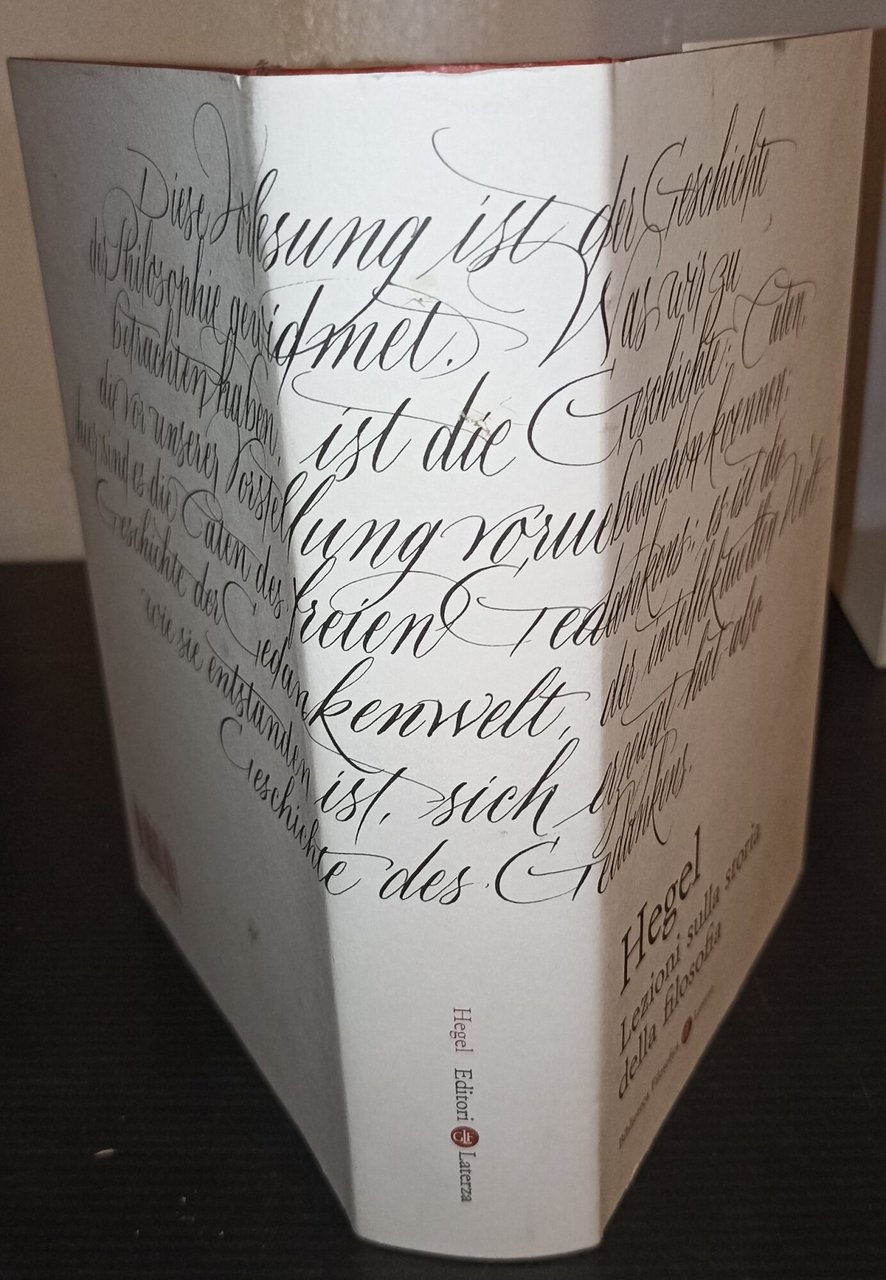 Diese Vorlesung ist der Geschichte
der Philosophie gewidmet. Was wir zu
betrachten haben, ist die Geschichte; Taten,
die vor unserer Vorstellung voruebergehen koennen;
hier sind es die Taten des freien Gedankens; es ist die
Geschichte der Gedankenwelt, der intellektuellen Welt
wie sie entstanden ist, sich erzeugt hat als
Geschichte des Gedankens.
Hegel
Lezioni sulla storia
della filosofia
Biblioteca Filosofica Laterza
Hegel Editori Laterza